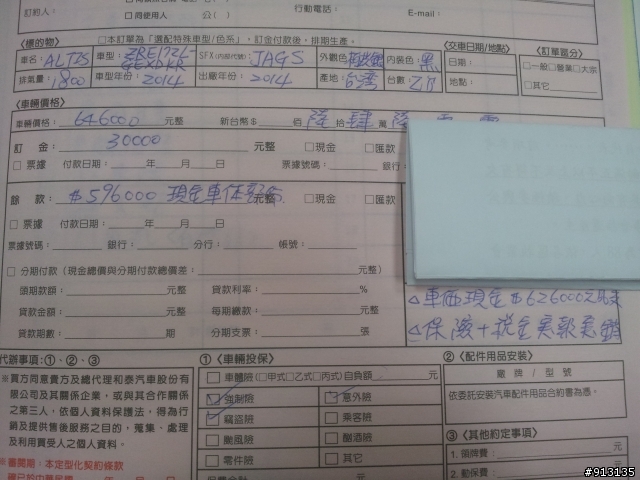 訂約人：
□同使用人 公( )
行動電話：
E-mail：
〈標的物〉 □本訂單為「選配特殊車型/色系」，訂金付款後，排期生產。
〈交車日期/地點〉 〈訂單區分〉
車名：ALTIS 車型：ZRE172L-GEXDKR SFX(內部代號)：JAGS 外觀色 內裝色：黑 日期： □一般□營業□大宗
排氣量：1800 車型年份：2014 出廠年份：2014 產地：台灣 台數： 地點： □其它
〈車輛價格〉
車輛價格：646000元整 新台幣$ 佰 陸拾肆萬陸
訂 金：30000 元整 □現金 □匯款
□票據 付款日期： 年 月 日 票據號碼： 銀行
餘 款：$596000 現金車体 元整 □現金 □匯款
□票據 付款日期： 年 月 日
票據號碼： 銀行： 分行： 帳號：
□分期付款（現金總價與分期付款總價差： 元整）
頭期款額： 元整 貸款利率： %
貸款金額： 元整 每期繳款： 元整
貸款期數： 期 分期支票： 張
△車価現金$626000元
△保險+稅金實報實銷
代辦事項：①、②、③
※買方同意貴方及總代理和泰汽車股份有
限公司及其關係企業，或與其合作關係
之第三人，依個人資料保護法，得為行
銷及提供售後服務之目的，蒐集、處理
及利用買受人之個人資料。
※審閱期：本定型化契約條款
①〈車輛投保〉
□車體險(□甲式□乙式□丙式)自負額 元
□強制險 □意外險
□竊盜險 □乘客險
□颱風險 □酗酒險
□零件險 □其它
保費合計 元
②〈配件用品安裝〉
廠 牌 / 型 號
依委託安裝汽車配件用品合約書為憑。
③〈其他約定事項〉
1. 領牌費： 元
2. 動保費： 元
#913135